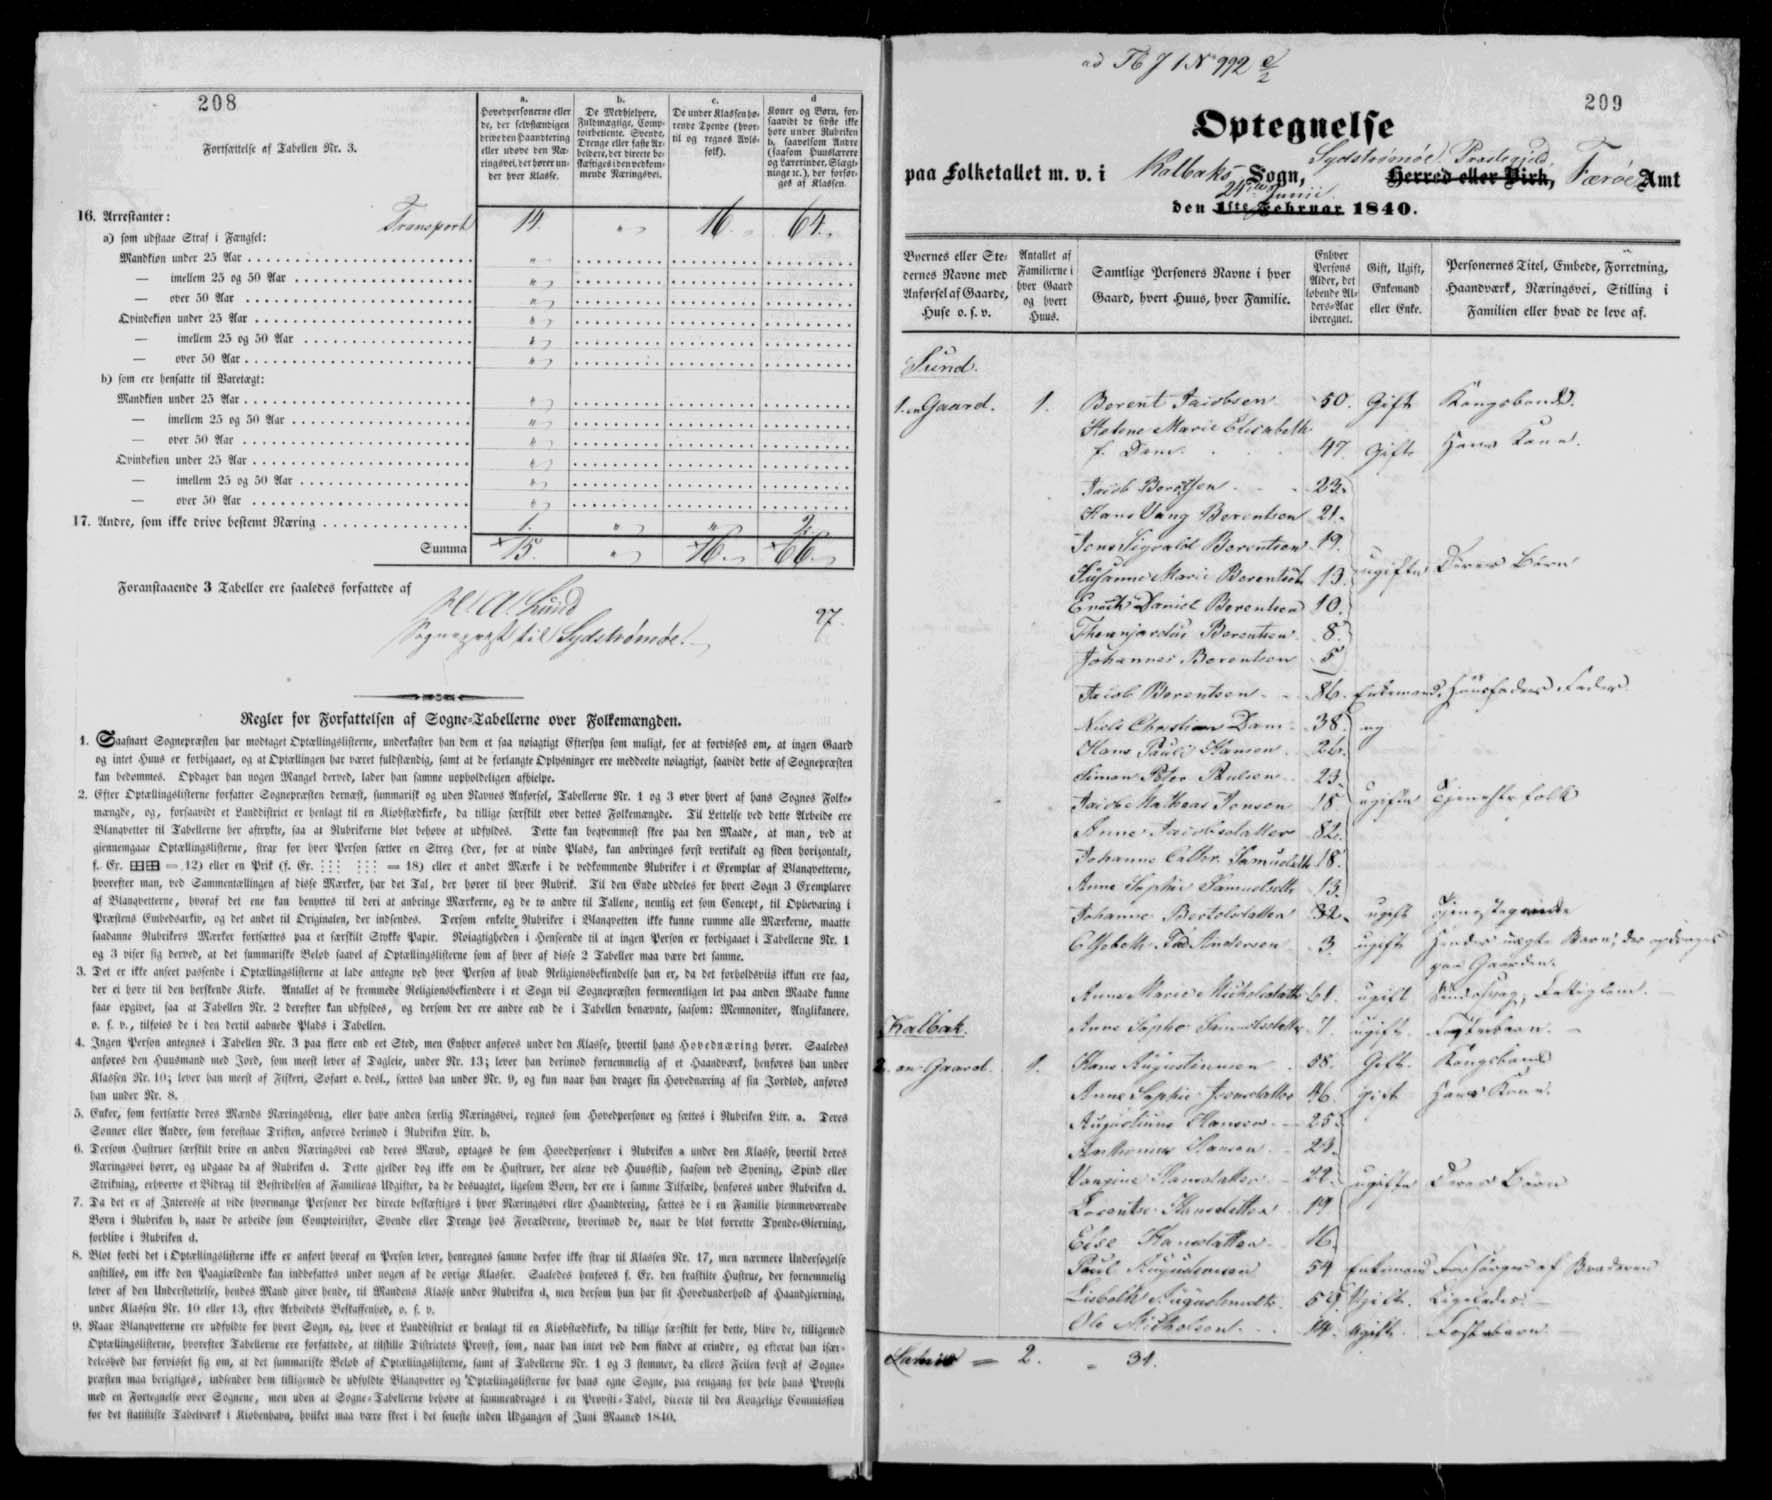 208
Fortsættelse af Tabellen Nr. 3.
a.
Hovedpersonerne eller
de, der selvstændigen
drive den Haandtering
eller udøve den Næ-
ringsvei, der hører un-
der hver Klasse.
b.
De Medhjelpere,
Fuldmægtige, Comp-
toirbetiente, Svende,
Drenge eller faste Ar-
beidere, der directe be-
skæftiges i den vedkom-
mende Næringsvei.
c.
De under Klassen hø-
rende Tyende (hvor-
til og regnes Avls-
folk).
d
Koner og Børn, for-
saavidt de sidste ikke
høre under Rubriken
b, saavelsom Andre
(saasom Huuslærere
og Lærerinder, Slægt-
ninge ꝛc.), der forsør-
ges af Klassen.
16. Arrestanter: Transport 14. " 16. 64.
a) som udstaae Straf i Fængsel:
Mandkiøn under 25 Aar "
— imellem 25 og 50 Aar "
— over 50 Aar "
Qvindekiøn under 25 Aar "
— imellem 25 og 50 Aar "
— over 50 Aar "
b) som ere hensatte til Varetægt:
Mandkiøn under 25 Aar "
— imellem 25 og 50 Aar "
— over 50 Aar "
Qvindekiøn under 25 Aar "
— imellem 25 og 50 Aar "
— over 50 Aar "
17. Andre, som ikke drive bestemt Næring 1. " " 2.
Summa 15. " 16. 66.
Foranstaaende 3 Tabeller ere saaledes forfattede af
Lund
Sognepræst til Sydstrømøe.
97.
Regler for Forfattelsen af Sogne-Tabellerne over Folkemængden.
1. Saasnart Sognepræsten har modtaget Optællingslisterne, underkaster han dem et saa nøiagtigt Eftersyn som muligt, for at forvisses om, at ingen Gaard
og intet Huus er forbigaaet, og at Optællingen har været fuldstændig, samt at de forlangte Oplysninger ere meddeelte nøiagtigt, saavidt dette af Sognepræsten
kan bedømmes. Opdager han nogen Mangel derved, lader han samme uopholdeligen afhielpe.
2. Efter Optællingslisterne forfatter Sognepræsten dernæst, summarisk og uden Navnes Anførsel, Tabellerne Nr. 1 og 3 over hvert af hans Sognes Folke-
mængde, og, forsaavidt et Landdistrict er henlagt til en Kiøbstædkirke, da tillige særskilt over dettes Folkemængde. Til Lettelse ved dette Arbeide ere
Blanqvetter til Tabellerne her aftrykte, saa at Rubrikerne blot behøve at udfyldes. Dette kan beqvemmest skee paa den Maade, at man, ved at
giennemgaae Optællingslisterne, strax for hver Person sætter en Streg (der, for at vinde Plads, kan anbringes først vertikalt og siden horizontalt,
f. Ex. = 12) eller en Prik (f. Ex. = 18) eller et andet Mærke i de vedkommende Rubriker i et Exemplar af Blanqvetterne,
hvorefter man, ved Sammentællingen af disse Mærker, har det Tal, der hører til hver Rubrik. Til den Ende uddeles for hvert Sogn 3 Exemplarer
af Blanqvetterne, hvoraf det ene kan benyttes til deri at anbringe Mærkerne, og de to andre til Tallene, nemlig eet som Concept, til Opbevaring i
Præstens Embedsarkiv, og det andet til Originalen, der indsendes. Dersom enkelte Rubriker i Blanqvetten ikke kunne rumme alle Mærkerne, maatte
saadanne Rubrikers Mærker fortsættes paa et særskilt Stykke Papir. Nøiagtigheden i Henseende til at ingen Person er forbigaaet i Tabellerne Nr. 1
og 3 viser sig derved, at det summariske Beløb saavel af Optællingslisterne som af hver af disse 2 Tabeller maa være det samme.
3. Det er ikke anseet passende i Optællingslisterne at lade antegne ved hver Person af hvad Religionsbekiendelse han er, da det forholdsviis ikkun ere faa,
der ei høre til den herskende Kirke. Antallet af de fremmede Religionsbekiendere i et Sogn vil Sognepræsten formeentligen let paa anden Maade kunne
faae opgivet, saa at Tabellen Nr. 2 derefter kan udfyldes, og dersom der ere andre end de i Tabellen benævnte, saasom: Memnoniter, Anglikanere,
o. s. v., tilføies de i den dertil aabnede Plads i Tabellen.
4. Ingen Person antegnes i Tabellen Nr. 3 paa flere end eet Sted, men Enhver anføres under den Klasse, hvortil hans Hovednæring hører. Saaledes
anføres den Huusmand med Jord, som meest lever af Dagleie, under Nr. 13; lever han derimod fornemmelig af et Haandværk, henføres han under
Klassen Nr. 10; lever han meest af Fiskeri, Søfart o. desl., sættes han under Nr. 9, og kun naar han drager sin Hovednæring af sin Jordlod, anføres
han under Nr. 8.
5. Enker, som fortsætte deres Mænds Næringsbrug, eller have anden særlig Næringsvei, regnes som Hovedpersoner og sættes i Rubriken Litr. a. Deres
Sønner eller Andre, som forestaae Driften, anføres derimod i Rubriken Litr. b.
6. Dersom Hustruer særskilt drive en anden Næringsvei end deres Mænd, optages de som Hovedpersoner i Rubriken a under den Klasse, hvortil deres
Næringsvei hører, og udgaae da af Rubriken d. Dette gjelder dog ikke om de Hustruer, der alene ved Huusflid, saasom ved Syening, Spind eller
Strikning, erhverve et Bidrag til Bestridelsen af Familiens Udgifter, da de desuagtet, ligesom Børn, der ere i samme Tilfælde, henføres under Rubriken d.
7. Da det er af Interesse at vide hvormange Personer der directe beskæftiges i hver Næringsvei eller Haandtering, sættes de i en Familie hiemmeværende
Børn i Rubriken b, naar de arbeide som Comptoirister, Svende eller Drenge hos Forældrene, hvorimod de, naar de blot forrette Tyende-Gierning,
forblive i Rubriken d.
8. Blot fordi det i Optællingslisterne ikke er anført hvoraf en Person lever, henregnes samme derfor ikke strax til Klassen Nr. 17, men nærmere Undersøgelse
anstilles, om ikke den Paagiældende kan indbefattes under nogen af de øvrige Klasser. Saaledes henføres f. Ex. den fraskilte Hustrue, der fornemmelig
lever af den Understøttelse, hendes Mand giver hende, til Mandens Klasse under Rubriken d, men dersom hun har sit Hovedunderhold af Haandgierning,
under Klassen Nr. 10 eller 13, efter Arbeidets Beskaffenhed, o. s. v.
9. Naar Blanqvetterne ere udfyldte for hvert Sogn, og, hvor et Landdistrict er henlagt til en Kiøbstædkirke, da tillige særskilt for dette, blive de, tilligemed
Optællingslisterne, hvorefter Tabellerne ere forfattede, at tilstille Districtets Provst, som, naar han intet ved dem finder at erindre, og efterat han især-
deleshed har forvisset sig om, at det summariske Beløb af Optællingslisterne, samt af Tabellerne Nr. 1 og 3 stemmer, da ellers Feilen først af Sogne-
præsten maa berigtiges, indsender dem tilligemed de udfyldte Blanqvetter og Optællingslisterne for hans egne Sogne, paa eengang for hele hans Provsti
med en Fortegnelse over Sognene, men uden at Sogne-Tabellerne behøve at sammendrages i en Provsti-Tabel, directe til den Kongelige Commission
for det statistiske Tabelværk i Kiøbenhavn, hvilket maa være skeet i det seneste inden Udgangen af Juni Maaned 1840.
ad Tb J 1 No 992 e/2
209
Optegnelse
paa Folketallet m. v. i Kalbaks Sogn, Sydstrømøe Præstegield, Herred eller Birk, Færøe Amt
den 1ste Februar 1840.
Byernes eller Ste-
dernes Navne med
Anførsel af Gaarde,
Huse o. s. v.
Antallet af
Familierne i
hver Gaard
og hvert
Huus.
Samtlige Personers Navne i hver
Gaard, hvert Huus, hver Familie.
Enhver
Persons
Alder, det
løbende Al-
ders-Aar
iberegnet.
Gift, Ugift,
Enkemand
eller Enke.
Personernes Titel, Embede, Forretning,
Haandværk, Næringsvei, Stilling i
Familien eller hvad de leve af.
Sund.
1. en Gaard. 1. Berent Jacobsen 50. Gift Kongsbonde.
Helene Marie Elisabeth
f. Dam. 47. Gift Hans Kone.
Jacob Berentsen 23.
Hans Vang Berentsen 21.
Jens Sigvald Berentsen 19.
Susanne Marie Berentsen 13. ugifte Deres Børn
Enoch Daniel Berentsen 10.
Berentsen 8.
Johannes Berentsen 5
Jacob Berentsen 86. Enkemand, Huusfaders Fader.
Niels Christian Dam 38.
Hans Pauli Hansen 26.
Simon Peter Paulsen 23.
Jacob Mathias Jonsen 18. ugifte Tjenestefolk
Anne Jacobsdatter 82.
Johanne Cathr. Samuelsdtr 18.
Anne Sophie Samuelsdtr 13.
Johanne 32. ugift
Elsebeth Andersen 3. ugift Hendes uægte Barn, der opdrages
paa Gaarden.
Anne Marie Michelsdatter 61. ugift Fattiglem.
Kalbak. Anne Sophie Samuelsdatter 7. ugift Fosterbarn.
2. en Gaard. 1. Hans Augustinusen 58. Gift. Kongsbonde
Anne Sophie Joensdatter 46. gift Hans Kone.
Augustinus Hansen 25.
Hansen 23.
Hansdatter 22. ugifte Deres Børn
Hansdatter 19
Else Hansdatter 16.
Poul Augustinusen 54 Enkemand Forsørges af Broderen
Lisbeth Augustinusdtr. 59. Ugift. Ligeledes.
Ole Michelsen 14. ugift. Fosterbarn
= 2. = 31.